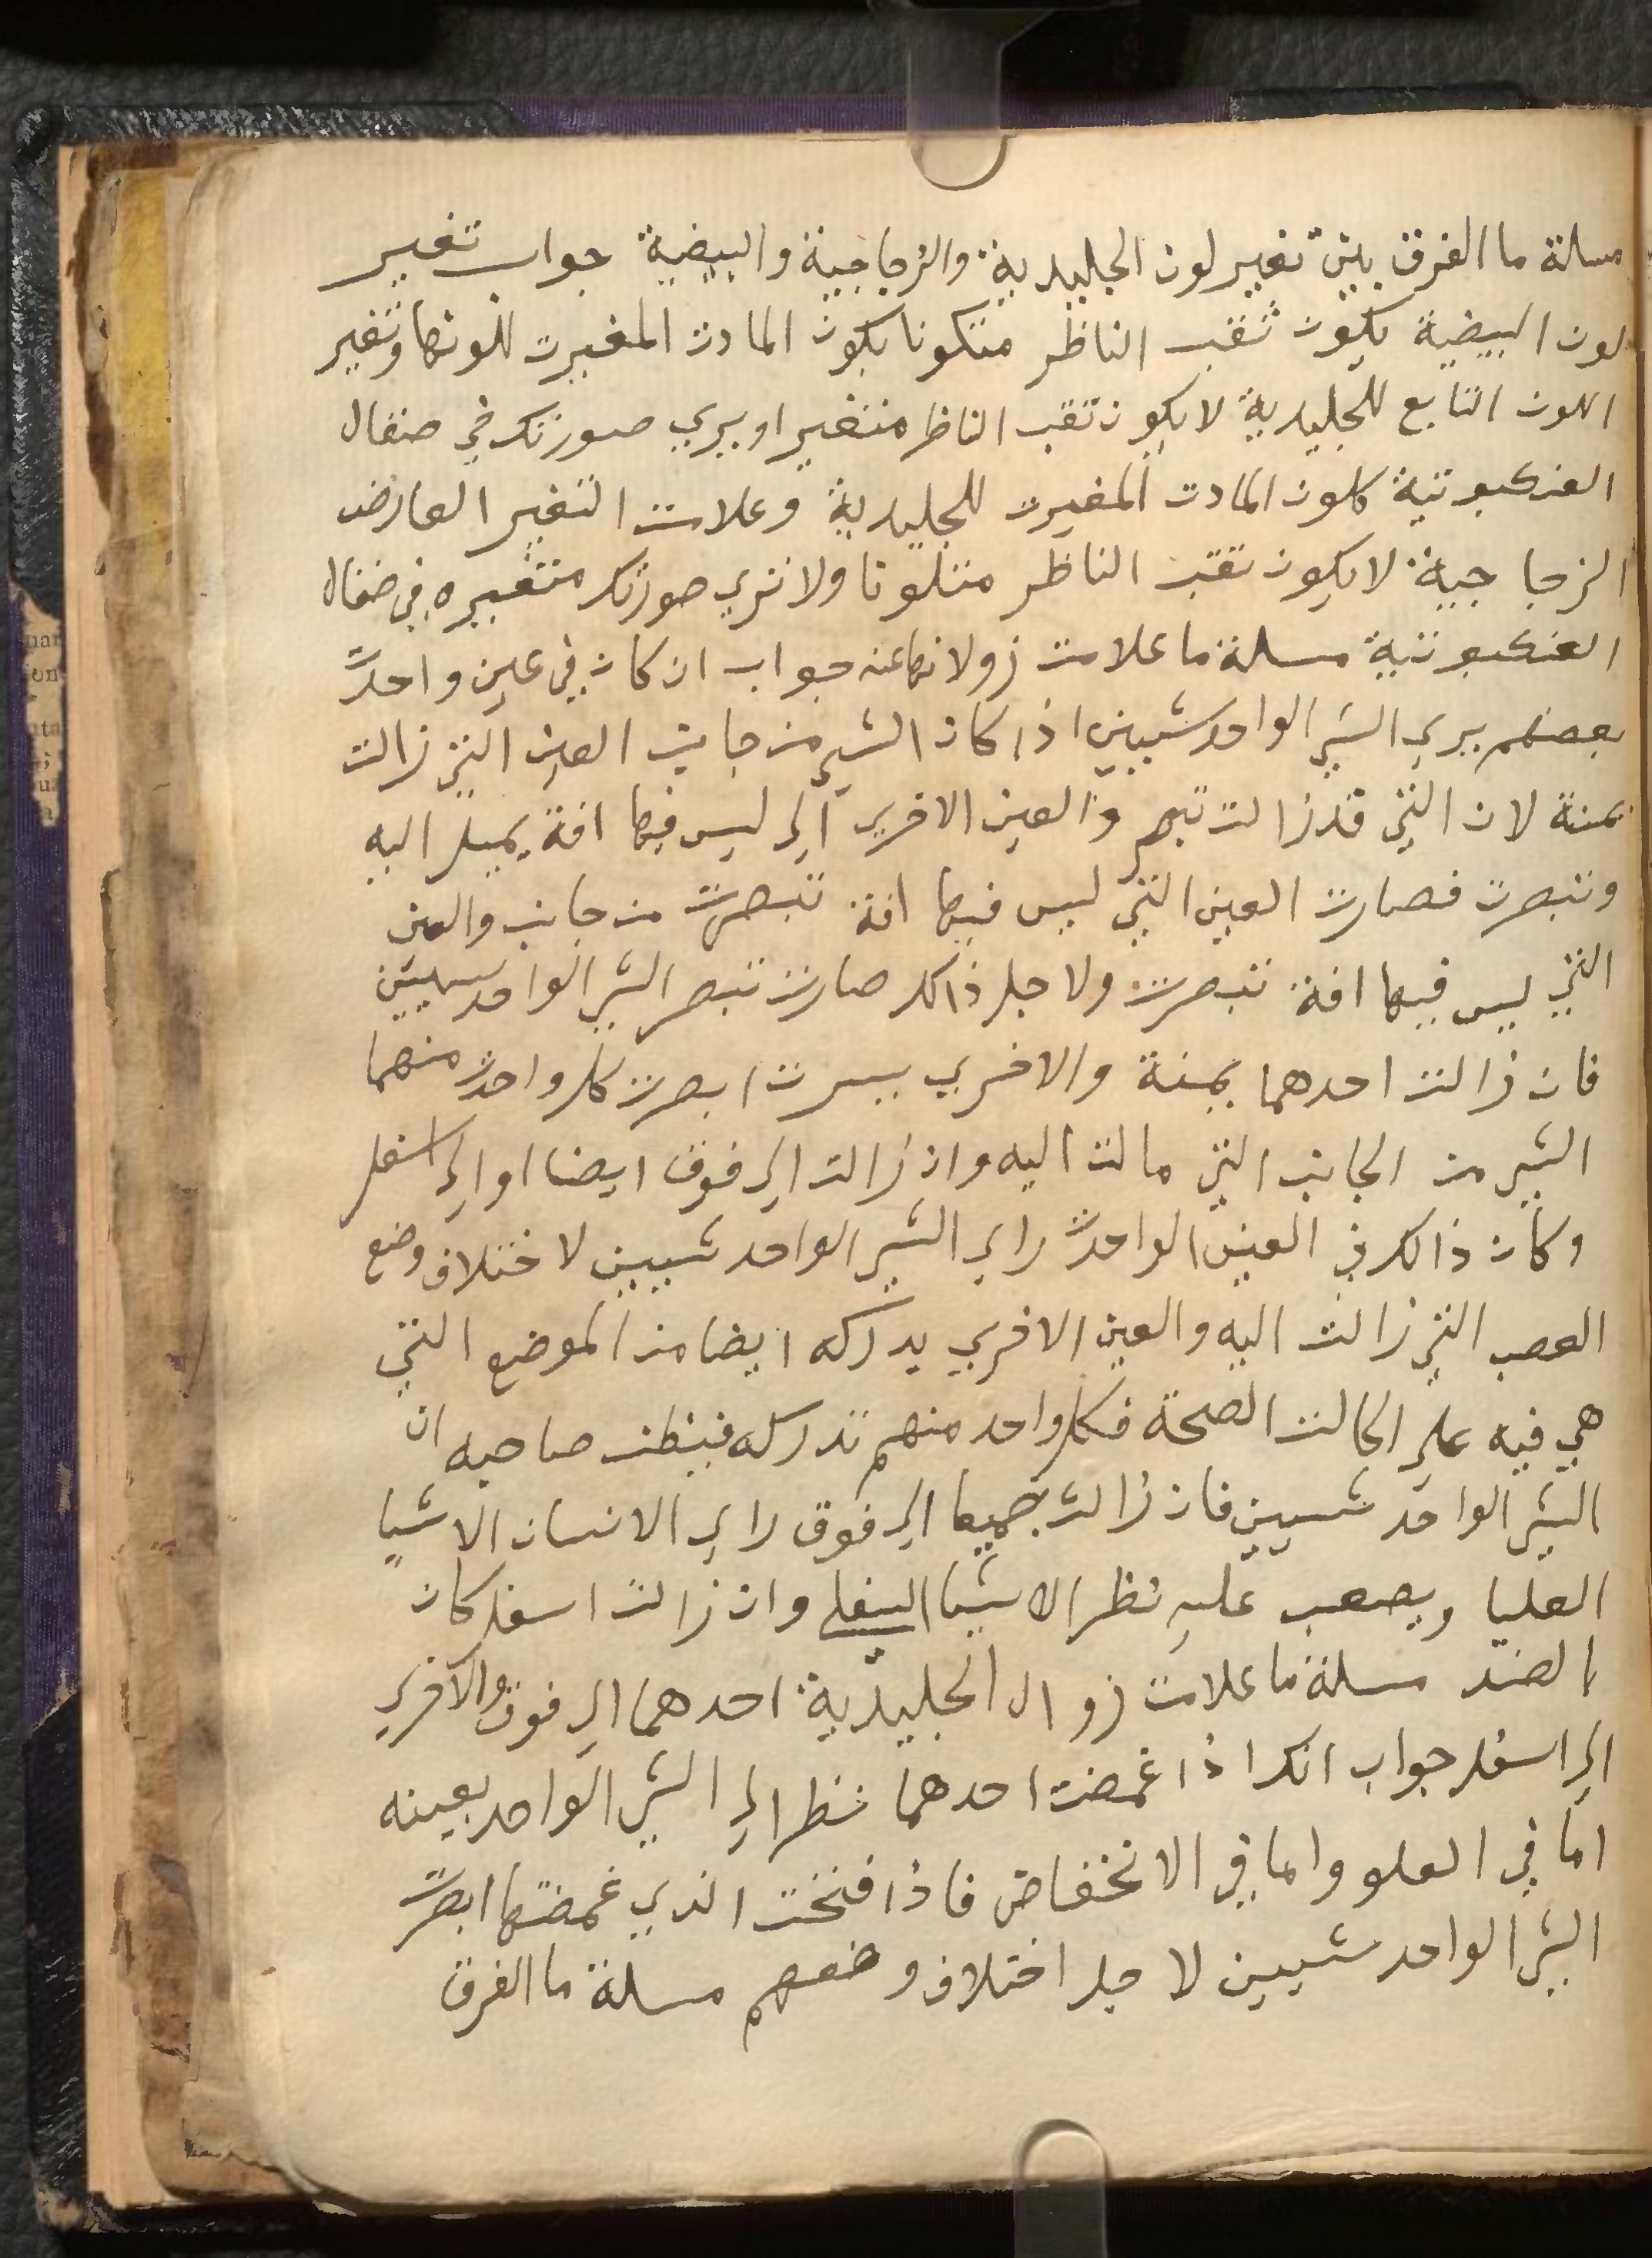 مسلة ما الفرق بين تغيير لون الجليدية والزجاجية والبيضية جواب تغيير
لون البيضية يكون ثقب الناظر متكونا بكون المادت المغيرت للونها وتغير
اللون التابع للجليدية لا يكون تقب الناظر متغيرا ويري صورتك في صقال
العنكبوتية كلون المادت المغيرت للجليدية وعلامت التغير العارض
الزجاجية لا يكون تقب الناظر متلونا ولا تري صورتك متغيره في صقال
العنكبوتية مسلة ما علامت زولانها عنه جواب ان كان في عين واحدت
بعضهم يري الشي الواحد شيين اذا كان الشي من جانب العين التي زالت
يمنة لان التي قد زالت تبصر والعين الاخري الي ليس فيها افة يميل اليه
وتبصرت فصارت العين التي ليس فيها افة تبصرت من جانب والعين
التي ليس فيها افة تبصرت ولاجل ذالك صارت تبصر الشي الواحد شيين
فان زالت احدهما يمنة والاخري يسرت ابصرت كل واحدت منهما
الشي من الجانب التي مالت اليه وان زالت الي فوق ايضا او الي اسفل
وكان ذالك في العين الواحدت راي الشي الواحد شيين لاختلاف وضع
العصب التي زالت اليه والعين الاخري يدركه ايضا من الموضع التي
هي فيه علي الحالت الصحة فكل واحد منهم تدركه فيظن صاحبه ان
الشي الواحد شيين فان زالت جميعا الي فوق راي الانسان الاشيا
العليا ويصعب عليه نظر الاشيا السفلي وان زالت اسفل كان
الضد مسلة ما علامت زوال الجليدية احدهما الي فوق والاخري
الي اسفل جواب انك اذا غمضت احدهما نظر الي الشي الواحد بعينه
اما في العلو واما في الانخفاض فاذا فتحت الذي غمضتها ابصرت
الشي الواحد شيين لاجل اختلاف وضعهم مسلة ما الفرق